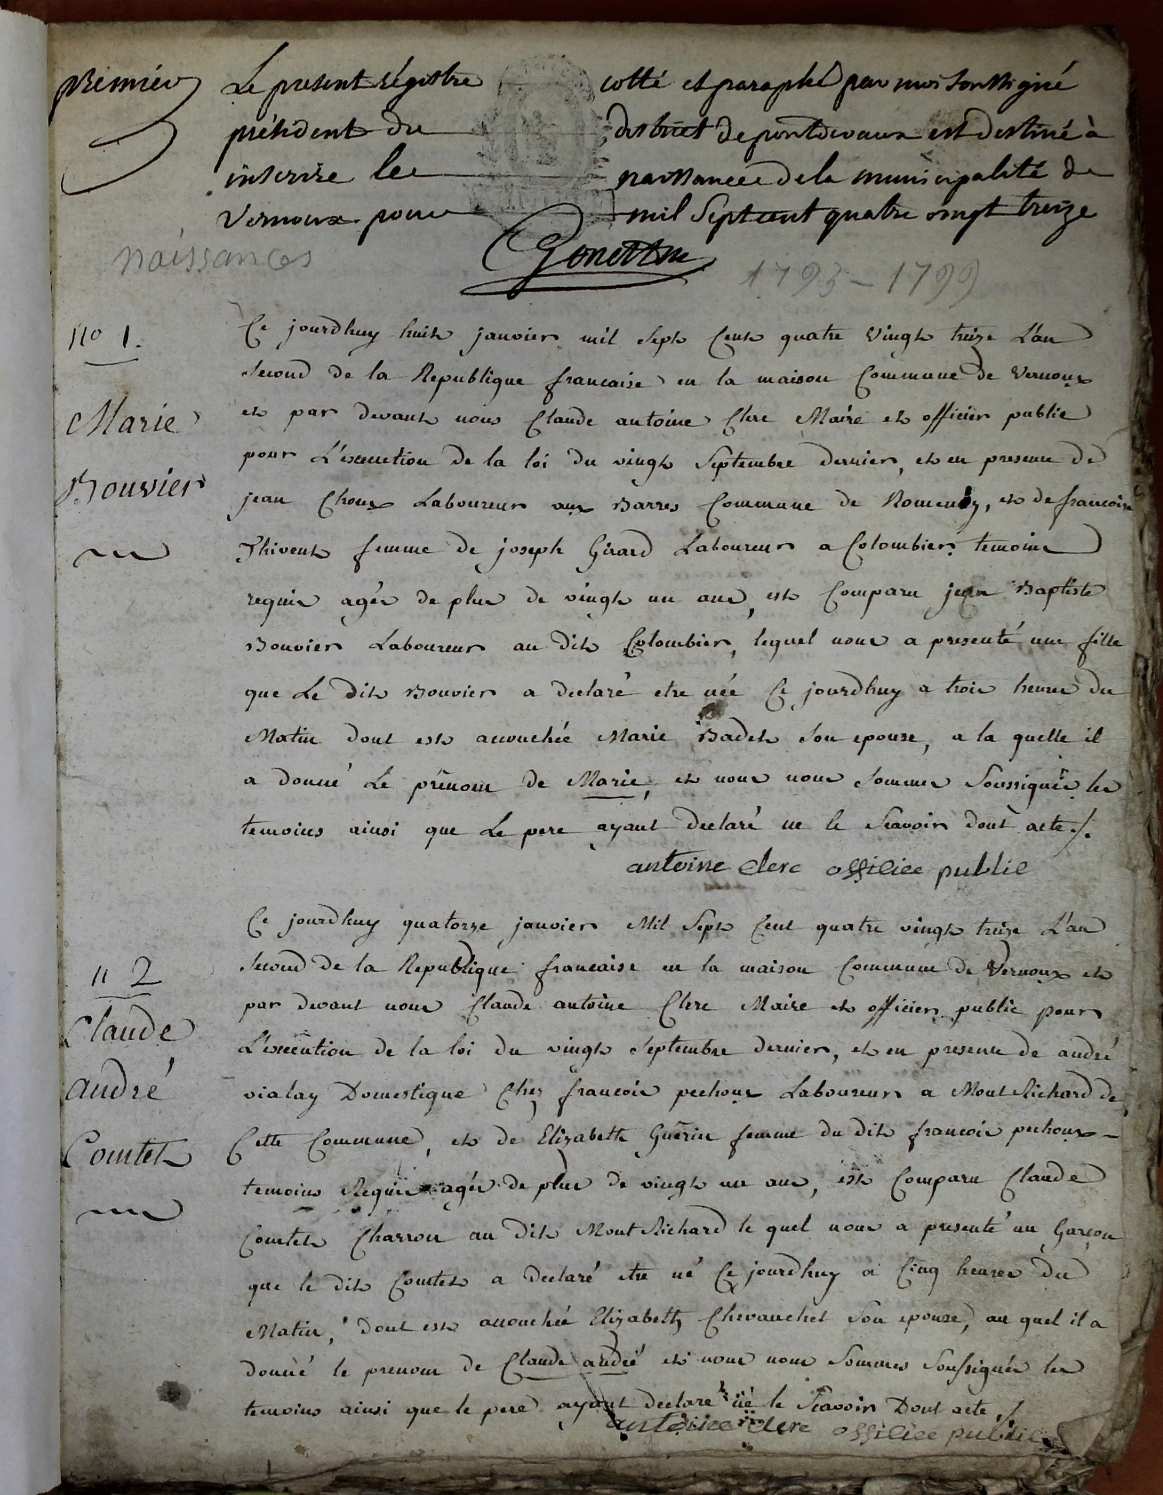 premier
Le present régistre cotté et paraphé par moi soussigné
président du district de pontdevaux est destiné à
inscrire les naissances de la municipalité de
vernoux pour mil sept cent quatre vingt treize
naissances
1793 - 1799
no 1.
Marie
Bouvier
Ce jourdhuy huit janvier mil sept Cent quatre vingt treize L'an
second de la Republique francaise en la maison Commune de vernoux
et par devant nous Claude antoine Clerc Maire et officier public
pour L'execution de la loi du vingt septembre dernier, et en presence de
jean Choux Laboureur aux Barres Commune de Romenay, et de francoise
Thivent femme de joseph Girard Laboureur a Colombier, temoins
requis agés de plus de vingt un ans, est Comparu jean Baptiste
Bouvier Laboureur au dit Colombier, lequel nous a presenté une fille
que Le dit Bouvier a declaré etre née Ce jourdhuy a trois heures du
Matin dont est accouchée Marie Badet son epouse, a la quelle il
a donné Le prénom de Marie, et nous nous sommes soussignés les
temoins ainsi que Le pere ayant declaré ne le scavoir dont acte ./.
antoine clerc officiee public
n 2
Claude
andré
Comtet
Ce jourdhuy quatorze janvier Mil sept Cent quatre vingt treize L'an
second de la Republique francaise en la maison Commune de vernoux et
par devant nous Claude antoine Clerc Maire et officier public pour
L'execution de la loi du vingt septembre dernier, et en presence de andré
vialay Domestique Chez francois pechoux Laboureur a MontRichard de
Cette Commune, et de Elizabeth Guérin femme du dit francois pechoux
temoins Requis agés de plus de vingt un ans, est Comparu Claude
Comtet Charron au dit MontRichard le quel nous a presenté un Garçon
que le dit Comtet a declaré etre né Ce jourdhuy a Cinq heures du
Matin, dont est accouchée Elizabeth Chevauchet son epouse, au quel il a
donné le prenom de Claude andré et nous nous sommes soussignés les
temoins ainsi que le pere ayant declare né le scavoir Dont acte ./.
antoine clerc officiee public